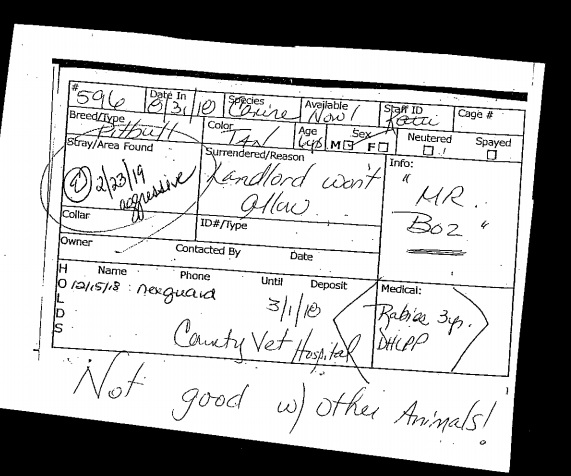 # 596 Date In 8/31/18 Species Canine Available Now! Staff ID Cage #
Breed/Type Pitbull Color TAN Age 4yrs Sex M ☑ F ☐ Neutered ☐ Spayed ☐
Stray/Area Found
2/23/19
aggressive
Surrendered/Reason
Landlord won't
allow
Info:
"MR.
BOZ"
Collar ID#/Type
Owner Contacted By Date
HOLDS Name Phone Until Deposit
12/15/18 nexguard 3/1/18
County Vet Hospital
Medical:
Rabies 3yr.
DHLPP
Not good w/ other Animals!